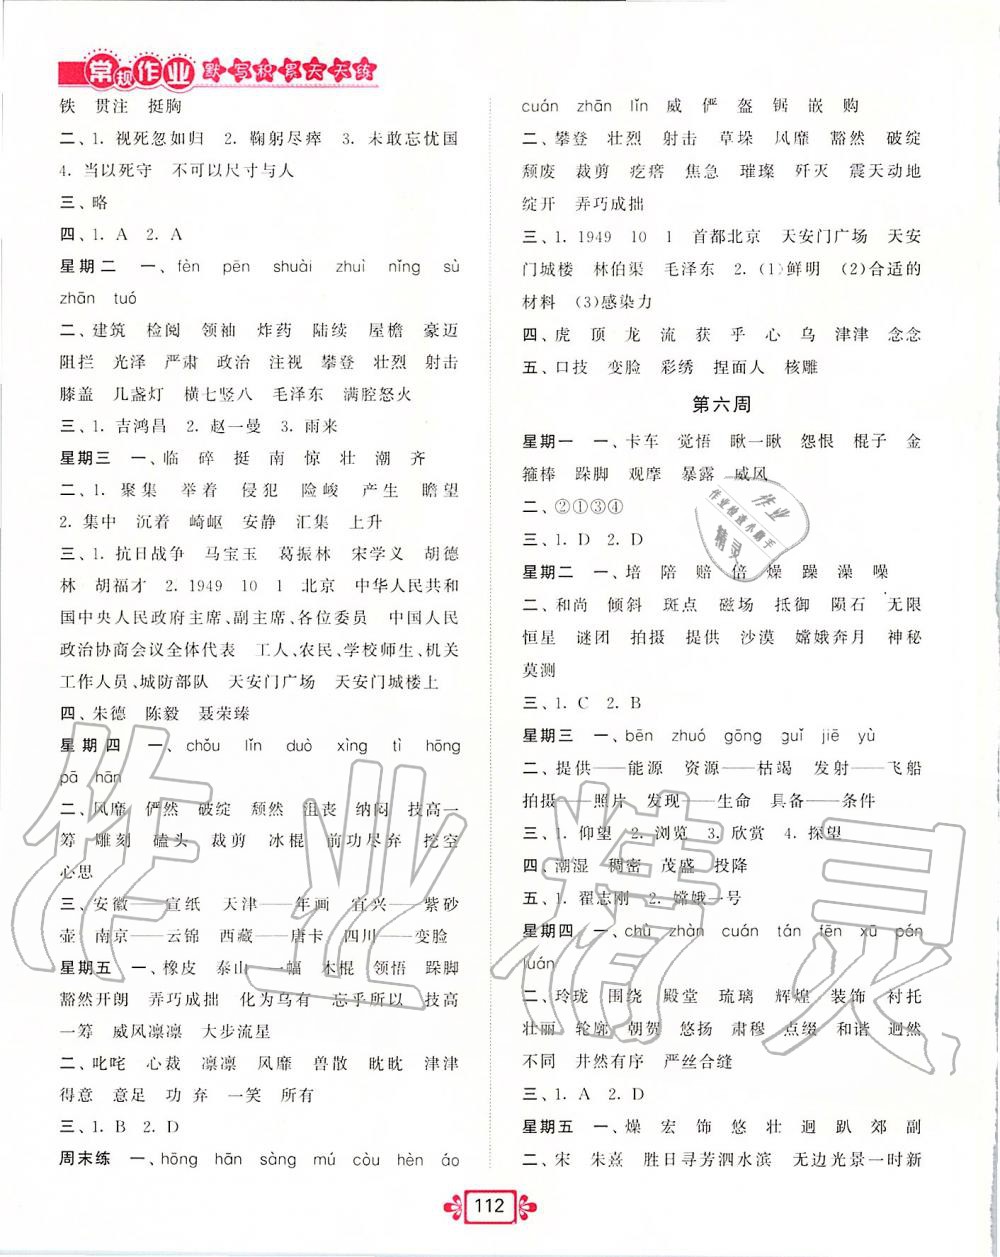 常规作业 默写积累天天练
铁 贯注 挺胸
二、1. 视死忽如归 2. 鞠躬尽瘁 3. 未敢忘忧国
4. 当以死守 不可以尺寸与人
三、略
四、1. A 2. A
星期二 一、fèn pēn shuài zhuì nǐng sù
zhān tuó
二、建筑 检阅 领袖 炸药 陆续 屋檐 豪迈
阻拦 光泽 严肃 政治 注视 攀登 壮烈 射击
膝盖 几盏灯 横七竖八 毛泽东 满腔怒火
三、1. 吉鸿昌 2. 赵一曼 3. 雨来
星期三 一、临 碎 挺 南 惊 壮 潮 齐
二、1. 聚集 举着 侵犯 险峻 产生 瞻望
2. 集中 沉着 崎岖 安静 汇集 上升
三、1. 抗日战争 马宝玉 葛振林 宋学义 胡德
林 胡福才 2. 1949 10 1 北京 中华人民共和
国中央人民政府主席、副主席、各位委员 中国人民
政治协商会议全体代表 工人、农民、学校师生、机关
工作人员、城防部队 天安门广场 天安门城楼上
四、朱德 陈毅 聂荣臻
星期四 一、chǒu lǐn duò xìng tì hōng
pā hān
二、风靡 俨然 破绽 颓然 沮丧 纳闷 技高一
筹 雕刻 磕头 裁剪 冰棍 前功尽弃 挖空
心思
三、安徽——宣纸 天津——年画 宜兴——紫砂
壶 南京——云锦 西藏——唐卡 四川——变脸
星期五 一、橡皮 泰山 一幅 木棍 领悟 跺脚
豁然开朗 弄巧成拙 化为乌有 忘乎所以 技高
一筹 威风凛凛 大步流星
二、叱咤 心裁 凛凛 风靡 兽散 眈眈 津津
得意 意足 功 弃 一笑 所有
三、1. B 2. D
周末练 一、hōng hān sàng mú còu hèn áo
cuán zhān lǐn 威 俨 盔 锯 嵌 购
二、攀登 壮烈 射击 草垛 风靡 豁然 破绽
颓废 裁剪 疙瘩 焦急 璀璨 歼灭 震天动地
绽开 弄巧成拙
三、1. 1949 10 1 首都北京 天安门广场 天安
门城楼 林伯渠 毛泽东 2. (1)鲜明 (2)合适的
材料 (3)感染力
四、虎 顶 龙 流 获 乎 心 乌 津津 念念
五、口技 变脸 彩绣 捏面人 核雕
第六周
星期一 一、卡车 觉悟 瞅一瞅 怨恨 棍子 金
箍棒 跺脚 观摩 暴露 威风
二、②①③④
三、1. D 2. D
星期二 一、培 陪 赔 倍 燥 躁 澡 噪
二、和尚 倾斜 斑点 磁场 抵御 陨石 无限
恒星 谜团 拍摄 提供 沙漠 嫦娥奔月 神秘
莫测
三、1. C 2. B
星期三 一、bēn zhuó gōng guǐ jiē yù
二、提供——能源 资源——枯竭 发射——飞船
拍摄——照片 发现——生命 具备——条件
三、1. 仰望 2. 浏览 3. 欣赏 4. 探望
四、潮湿 稠密 茂盛 投降
五、1. 翟志刚 2. 嫦娥一号
星期四 一、chǔ zhàn cuán tán fēn xū pán
luán
二、玲珑 围绕 殿堂 琉璃 辉煌 装饰 衬托
壮丽 轮廓 朝贺 悠扬 肃穆 点缀 和谐 迥然
不同 井然有序 严丝合缝
三、1. A 2. D
星期五 一、燥 宏 饰 悠 壮 迥 趴 郊 副
二、宋 朱熹 胜日寻芳泗水滨 无边光景一时新
112
作业精灵
作业
作业检查小助手
精灵